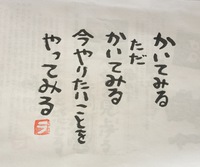 かいてみる
ただ
かいてみる
今やりたいことを
やってみる
ラ